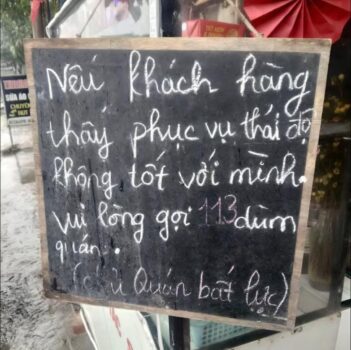 SỬA ÁO
CHUYÊN
Nếu khách hàng
thấy phục vụ thái độ
không tốt với mình.
vui lòng gọi 113 dùm
quán.
(chủ Quán bất lực)